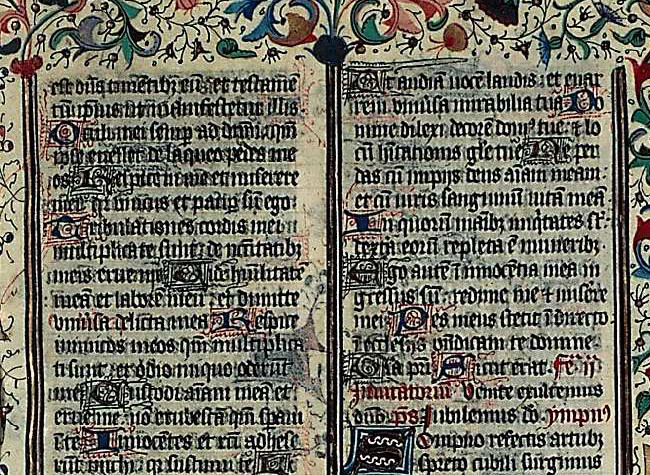 est dñs timentibꝫ eũ: et testamẽ
tũ ipsius ut manifestetur illis
Oculi mei semꝑ ad dñm: qm̃
ipse evellet de laqueo pedes me
os Respice in me et miserere
mei: qr unicus et paup sũ ego
Tribulationes cordis mei
multiplicate sunt: de nc̃itatibꝫ
meis erue me Vide hũilitatẽ
meã et laborẽ meũ: et dimitte
univsa delicta mea Respice
inimicos meos qm̃ multiplica
ti sunt: et odio iniquo oderũt
me Custodi aĩam meã et
erue me: nõ erubescã qm̃ speraui
ĩ te Innocẽtes et rc̃ti adhese
rũt michi: qr sustinui te
Ut audiã uocẽ laudis: et enar
rem univsa mirabilia tua Do
mine dilexi decorẽ dom⁹ tue: et lo
cũ hĩtationis gl̃ie tue Ne per
das cũ impijs deus aĩam meam:
et cũ uiris sanguinũ uitã meã
In quorũ manibꝫ iniq̃tates sũt:
dextera eorũ repleta ẽ muneribꝫ
Ego autẽ ĩ innocẽtia mea in
gressus sũ: redime me et misere
mei Pes meus stetit ĩ directo
ĩ ecclesijs bñdicam te domine
Glã pr̃i Sicut erat. Fer̃ ij
Inuitatoriũ Venite exultemus
dño. ps̃ Jubilemus dõ. ympn⁹
Sompno refectis artubꝫ
spreto cubili surgimus